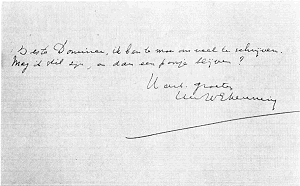 Beste Dominee, ik ben te moe om veel te schrijven.
Mag ik dit zijn, en dan een poosje blijven?
Hart. groeten